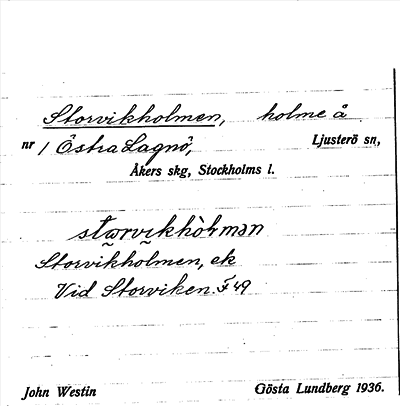 Storvikholmen, holme å
nr 1 Östra Lagnö, Ljusterö sn,
Åkers skg, Stockholms l.
Storvikholmen, ek
Vid Storviken. F 49
John Westin Gösta Lundberg 1936.